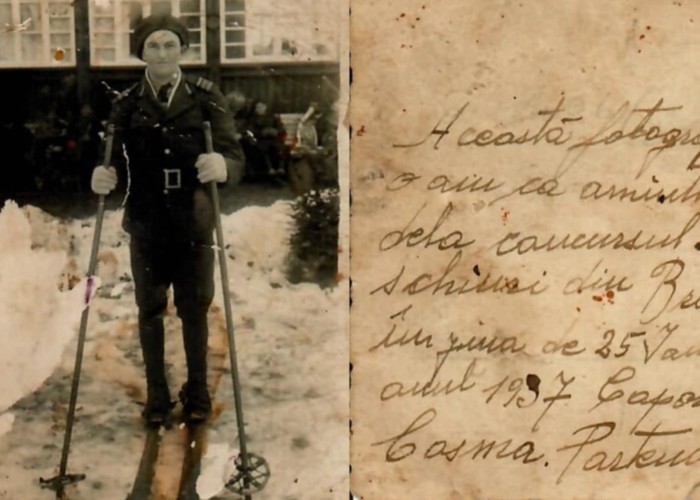 Această fotogra
o am ca amin
dela concursul
schiuri din Br
în ziua de 25 Ian
anul 1937 Capo
Cosma. Parten